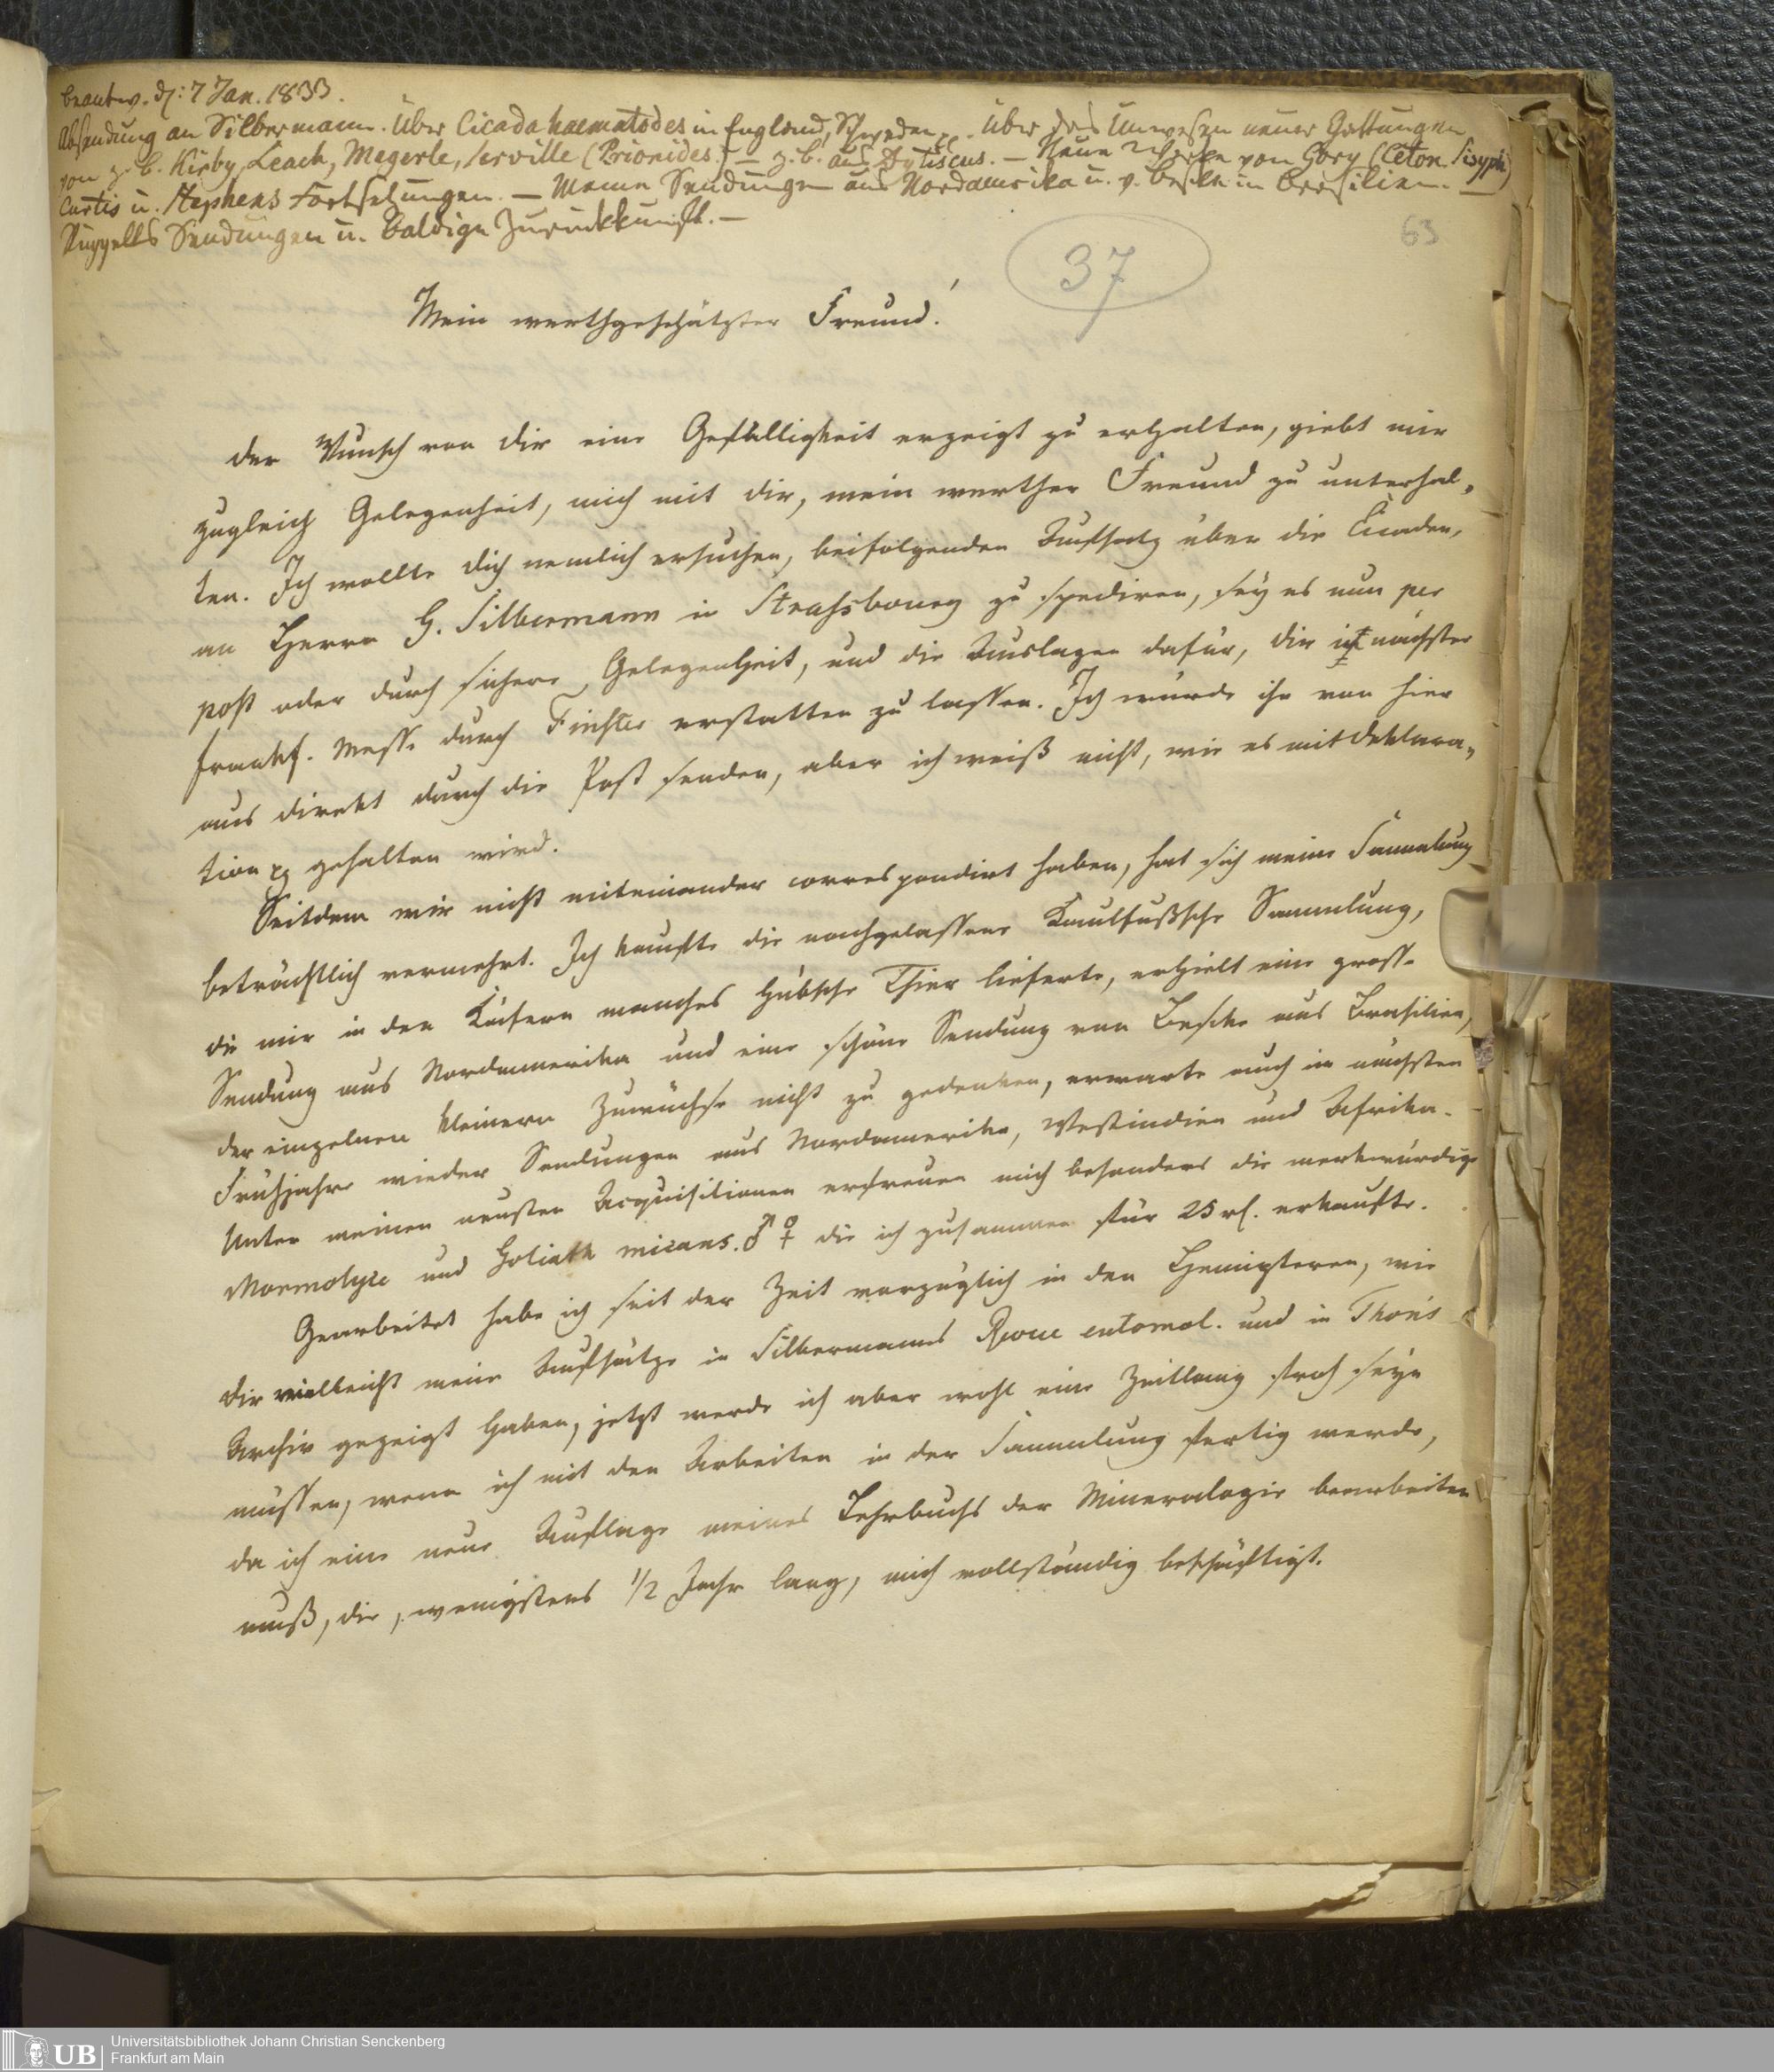 beantw. d: 7 Jan. 1833.
Absendung an Silbermann. Über Cicada haematodes in England, Schweden pp. Über das Unwesen neuer Gattungen
von z. b. Kirby, Leach, Megerle, Serville (Prionides.) – z. b. aus Dytiscus. – Neue Werke von Gory (Ceton. Sisyph)
Curtis u. Stephens Fortsetzungen. – Meine Sendungen aus Nordamerika u. v. Beske in Brasilien. –
Rüppells Sendungen u. baldige Zurückkunft. –
63
37
Mein werthgeschätzter Freund!
der Wunsch von dir eine Gefälligkeit erzeigt zu erhalten, giebt mir
zugleich Gelegenheit, mich mit dir, mein werther Freund zu unterhal-
ten. Ich wollte dich nemlich ersuchen, beifolgenden Aufsatz über die Cicaden,
an Herrn G. Silbermann in Strassbourg zu spediren, sey es nun per
post oder durch sichere Gelegenheit, und die Auslagen dafür, dir in nächster
frankf. Messe durch Finster erstatten zu lassen. Ich würde ihn von hier
aus direkt durch die Post senden, aber ich weiß nicht, wie es mit Deklara-
tion pp gehalten wird.
Seitdem wir nicht miteinander correspondirt haben, hat sich meine Sammlung
beträchtlich vermehrt. Ich kaufte die nachgelassene Kaulfußsche Sammlung,
die mir in den Käfern manches hübsche Thier lieferte, erhielt eine grosse
Sendung aus Nordamerika und eine schöne Sendung von Beske aus Brasilien,
der einzelnen kleinern Zuwüchse nicht zu gedenken, erwarte auch im nächsten
Frühjahre wieder Sendungen aus Nordamerika, Westindien und Afrika.
Unter meinen neusten Acquisitionen erfreuen mich besonders die merkwürdige
Mormolyce und Goliath micans. ♂ ♀ die ich zusammen für 25 rf. erkaufte.
Gearbeitet habe ich seit der Zeit vorzüglich in den Hemipteren, wie
dir vielleicht meine Aufsätze in Silbermanns Revue entomol. und in Thon's
Archiv gezeigt haben, jetzt werde ich aber wohl eine Zeitlang froh seyn
müssen, wenn ich mit den Arbeiten in der Sammlung fertig werde,
da ich eine neue Auflage meines Lehrbuchs der Mineralogie bearbeiten
muß, die, wenigstens 1/2 Jahr lang, mich vollständig beschäftigt.
UB
Universitätsbibliothek Johann Christian Senckenberg
Frankfurt am Main